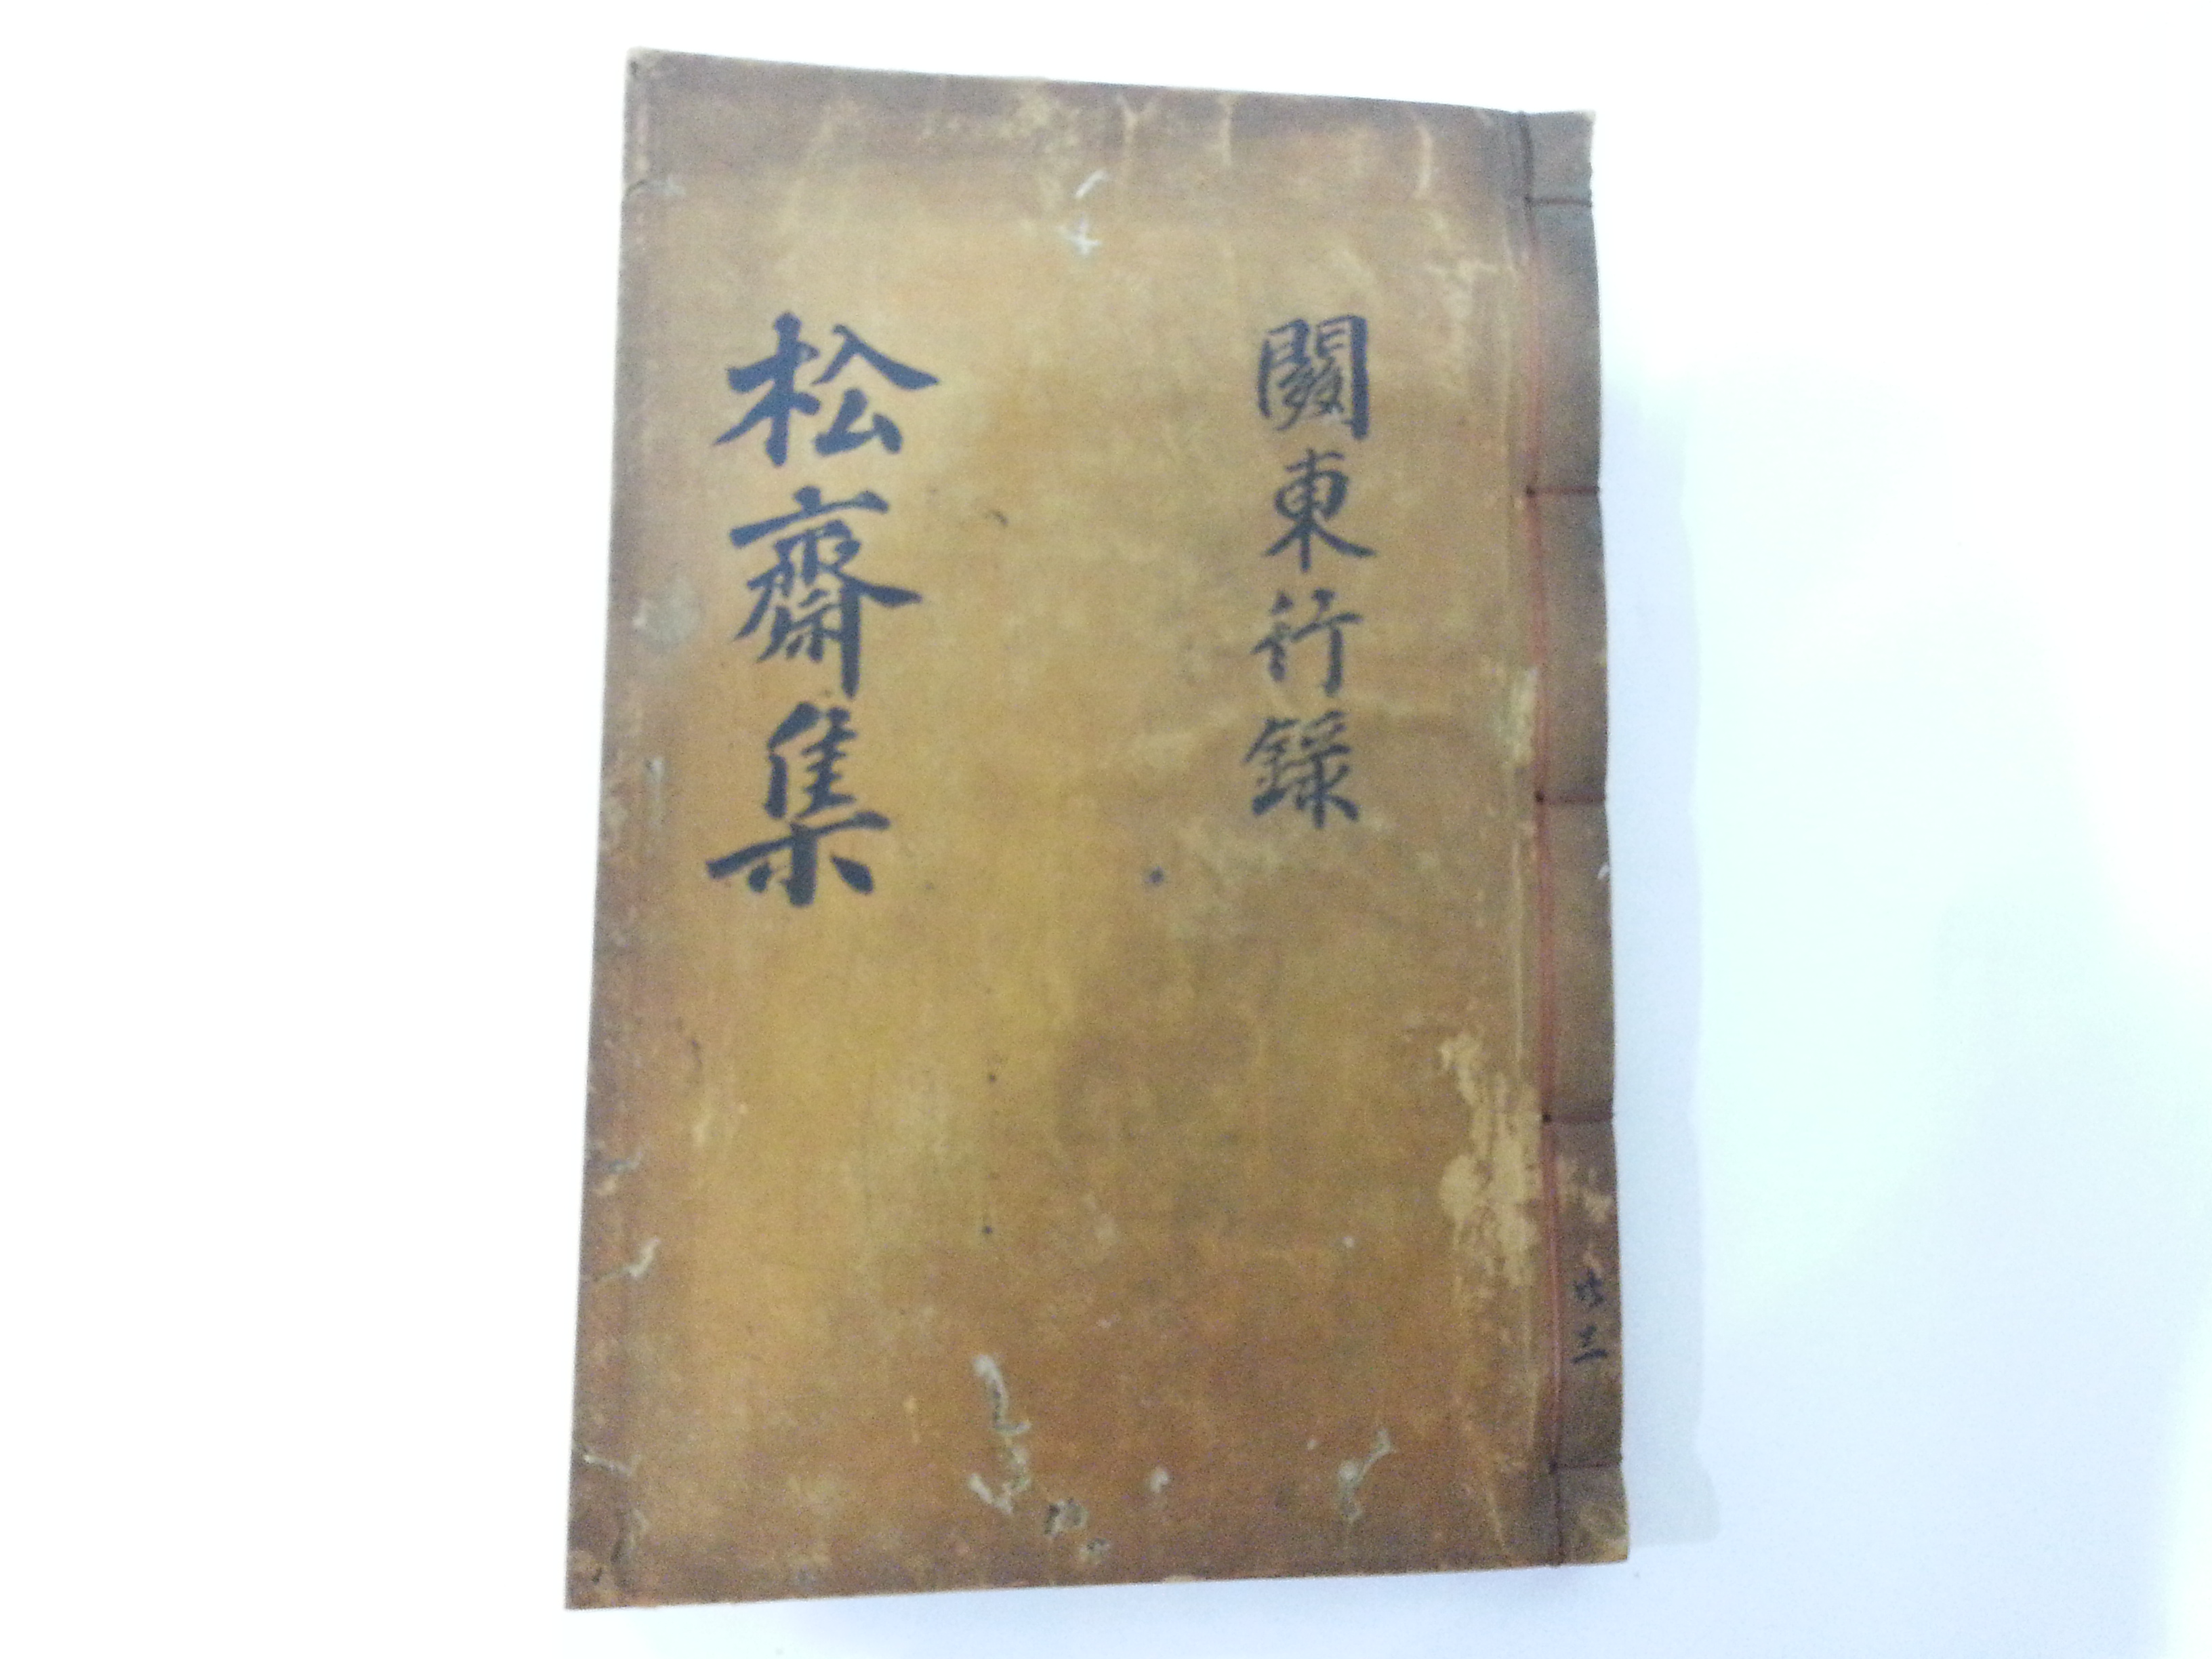 共三
關東行錄
松齋集